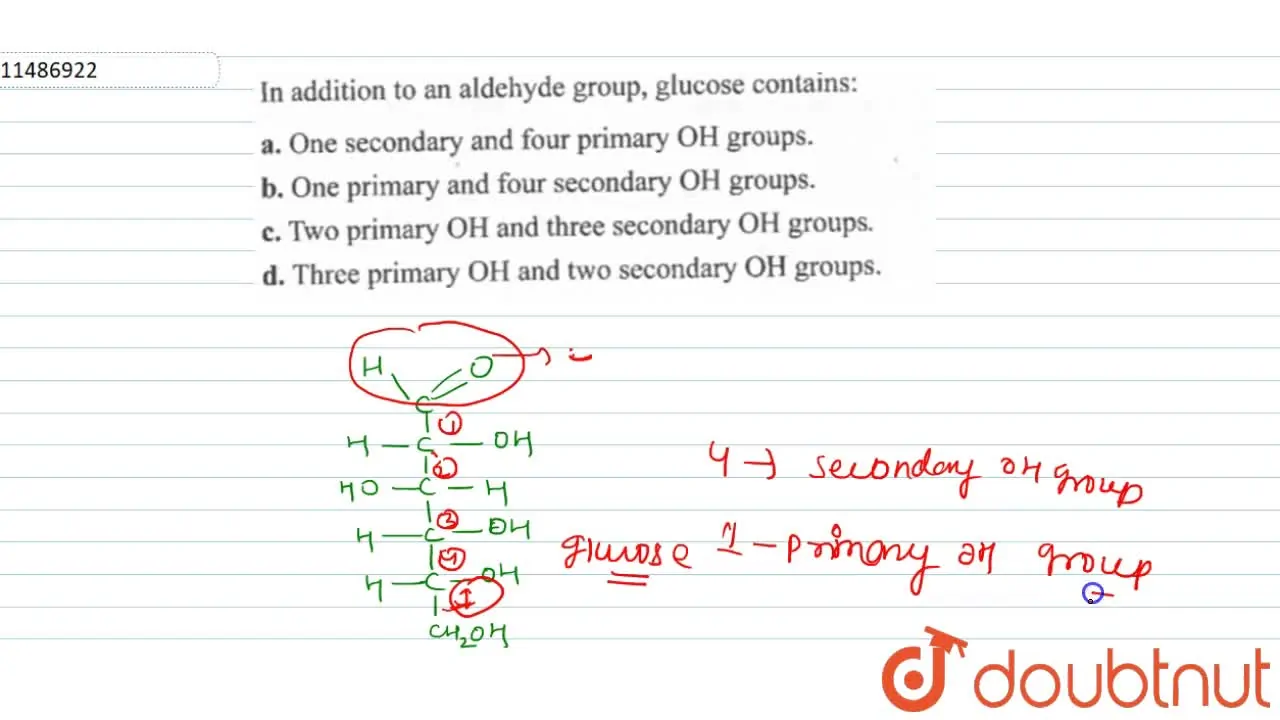 11486922
In addition to an aldehyde group, glucose contains:
a. One secondary and four primary OH groups.
b. One primary and four secondary OH groups.
c. Two primary OH and three secondary OH groups.
d. Three primary OH and two secondary OH groups.
H O
C
1
H — C — OH
HO — C — H
H — C — OH
H — C — OH
1
CH2OH
4 → secondary OH group
glucose 1 - primary OH group
doubtnut